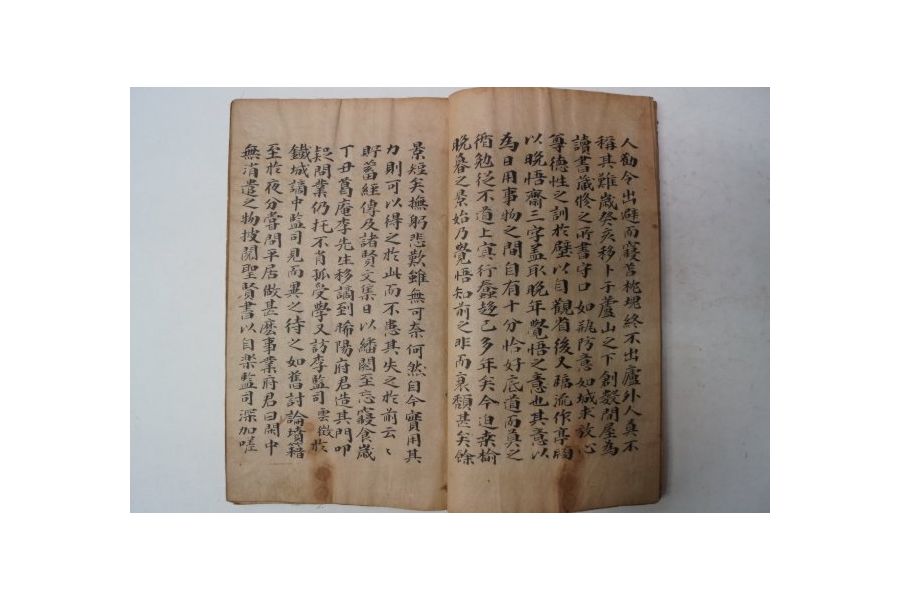 人勸令出避而寢苫枕塊終不出廬外人莫不
稱其難歲癸亥移卜于蘆山之下創數間屋為
讀書藏修之所書守口如瓶防意如城求放心
尊德性之訓於壁以自觀省後又臨流作亭扁
以晩悟齋三字盖取晩年覺悟之意也其意以
為日用事物之間自有十分恰好底道而莫之
循勉從不道上冥行蠱趍已多年矣今迫桑榆
晩暮之景始乃覺悟知前之非而衰頹甚矣餘
景短矣撫躬悲歎雖無可奈何然自今實用其
力則可以得之於此而不患其失之於前云〻
貯蓄經傳及諸賢文集日以繙閱至忘寢食歲
丁丑葛庵李先生移謫到晞陽府君造其門叩
疑問業仍托不肖孤受學又訪李監司雲徵於
鐵城謫中監司見而異之待之如舊討論墳籍
至於夜分嘗問平居做甚麽事業府君曰閑中
無消遣之物披閱聖賢書以自樂監司深加嗟